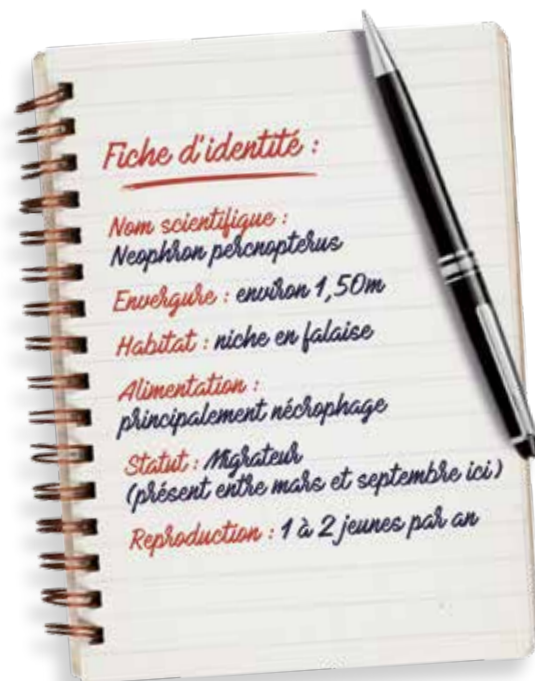 Fiche d'identité :
Nom scientifique :
Neophron percnopterus
Envergure : environ 1,50m
Habitat : niche en falaise
Alimentation :
principalement nécrophage
Statut : Migrateur
(présent entre mars et septembre ici)
Reproduction : 1 à 2 jeunes par an